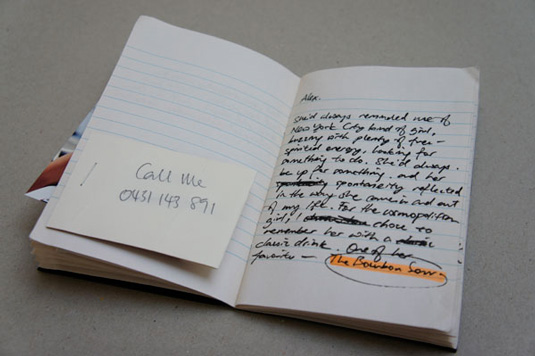 Call Me
0431 143 891
Alex.
She'd always reminded me of
New York City kind of girl,
buzzing with plenty of free-
spirited energy, looking for
something to do. She'd always
be up for something. and her
spontaneity reflected
in the way she comes in and out
of my life. For the cosmopolitan
girl, I chose to
remember her with a
classic drink. One of her
favorites —
The Bourbon Sour